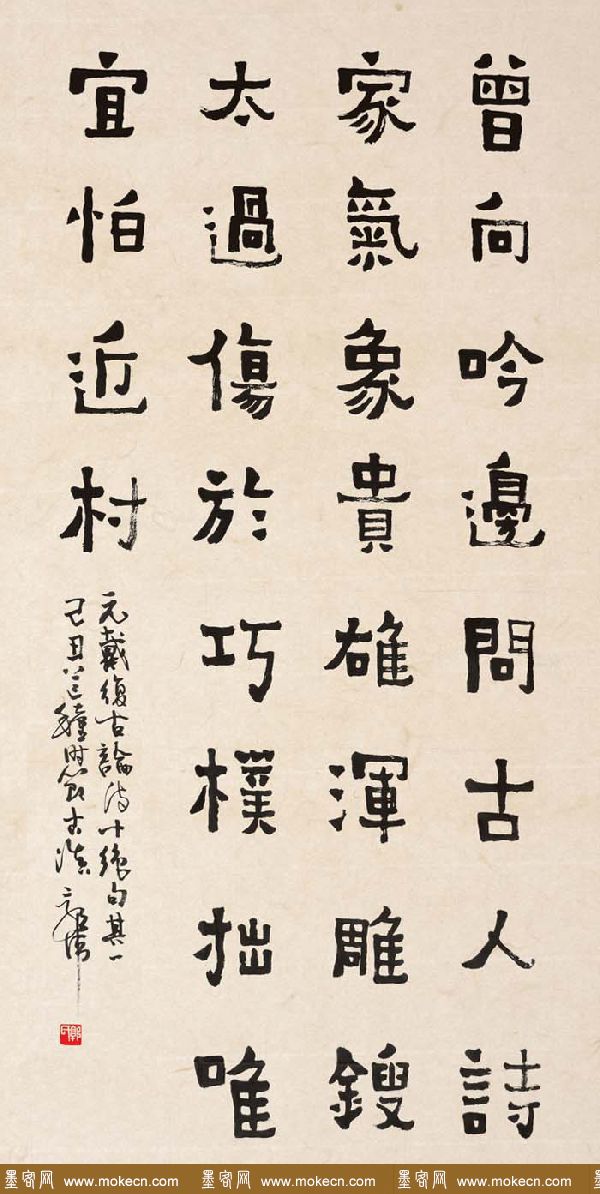 曾向吟邊問古人詩
家氣象貴雄渾雕鎪
太過傷於巧樸拙唯
宜怕近村
元戴復古論詩十絕句其一
己丑芒種時節古滇
墨客网 www.mokecn.com 墨客网 www.mokecn.com 墨客网 www.mokecn.com